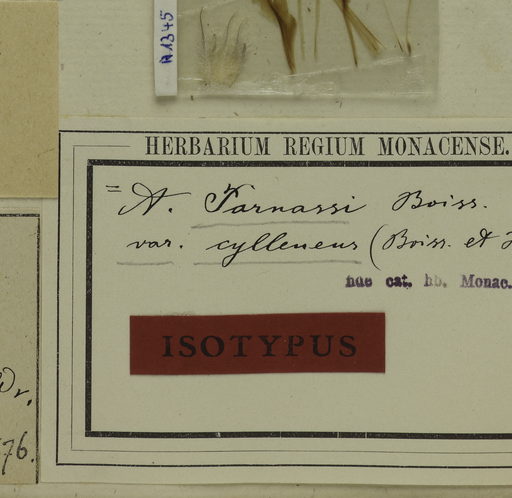 A1345
HERBARIUM REGIUM MONACENSE.
= A. Parnassi Boiss.
var. cylleneus (Boiss. et
hue cat. hb. Monac.
ISOTYPUS
76.